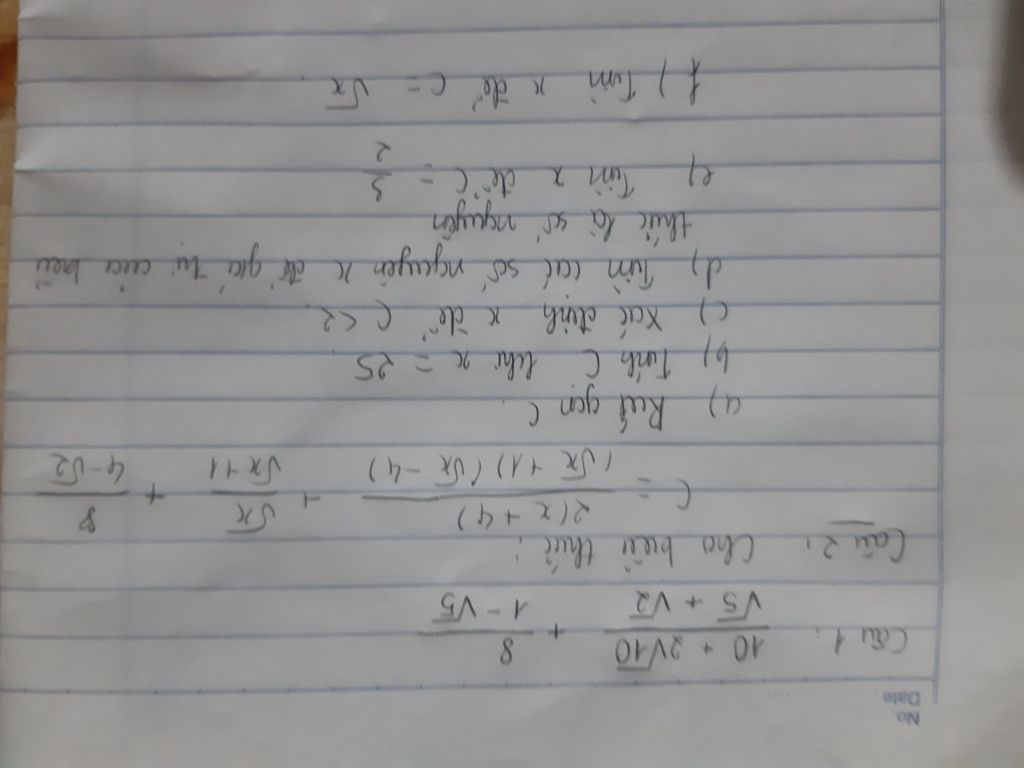 No
Date
Câu 1. 10 + 2√10 / √5 + √2 + 8 / 1 - √5
Câu 2. Cho biểu thức :
C = 2(x + 4) / (√x + 1)(√x - 4) + √x / √x + 1 + 8 / 4 - √2
a) Rút gọn C.
b) Tính C khi x = 25
c) Xác định x để C < 2.
d) Tìm các số nguyên x để giá trị của biểu
thức là số nguyên
e) Tìm x để C = 3/2
f) Tìm x để C = √x.